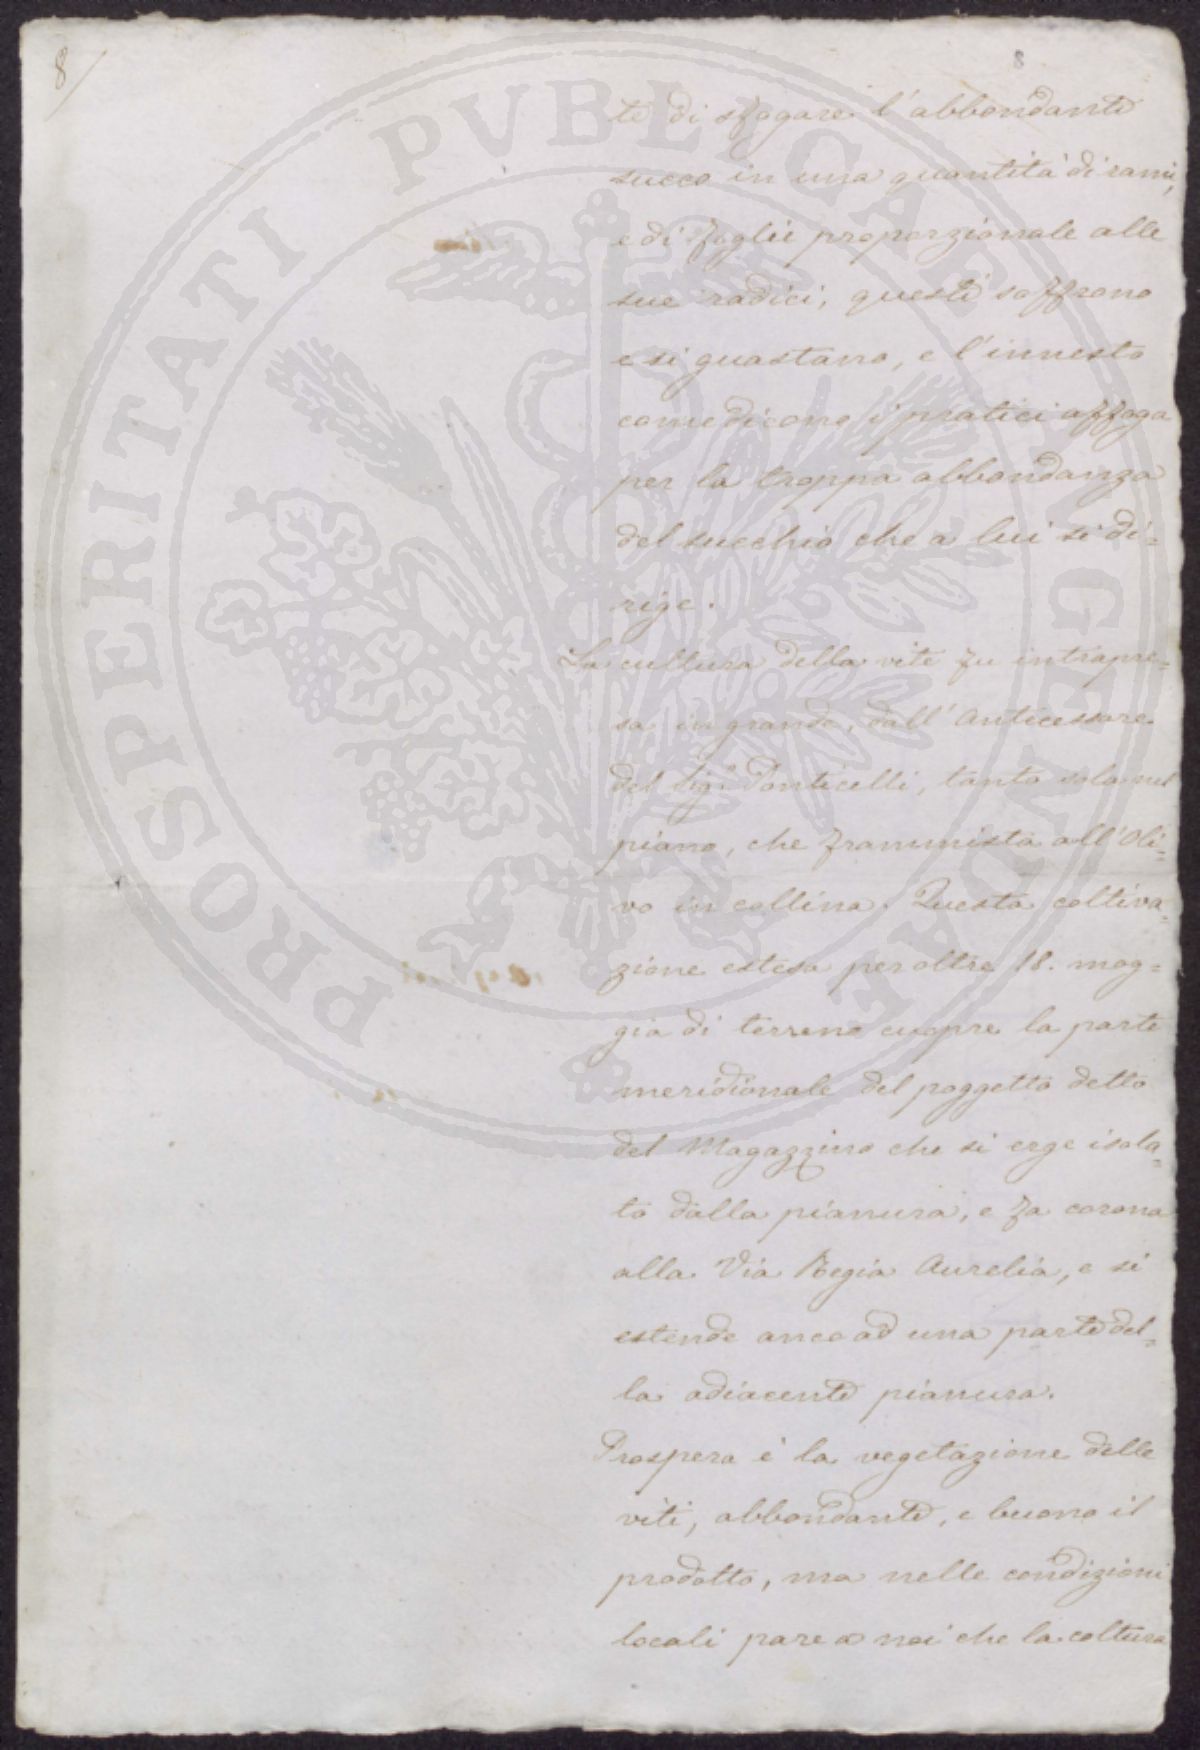 8
8
te di sfogare l'abbondante
succo in una quantità di rami,
e di foglie proporzionale alle
sue radici, queste soffrono
e si guastano, e l'innesto
come dicono i pratici affoga
per la troppa abbondanza
del succhio che a lui si di=
rige.
La cultura della vite fu intrapre=
sa in grande, dall'Antecessore
del Sig.r Ponticelli, tanto sola nel
piano, che frammista all'Oli=
vo in collina. Questa coltiva=
zione estesa per oltre 18. mog=
gia di terreno cuopre la parte
meridionale del poggetto detto
del Magazzino che si erge isola=
to dalla pianura, e fa corona
alla Via Regia Aurelia, e si
estende anco ad una parte del=
la adiacente pianura.
Prospera è la vegetazione delle
viti, abbondante, e buono il
prodotto, ma nelle condizioni
locali pare a noi che la coltura
PROSPERITATI PVBLICAE AVGENDAE